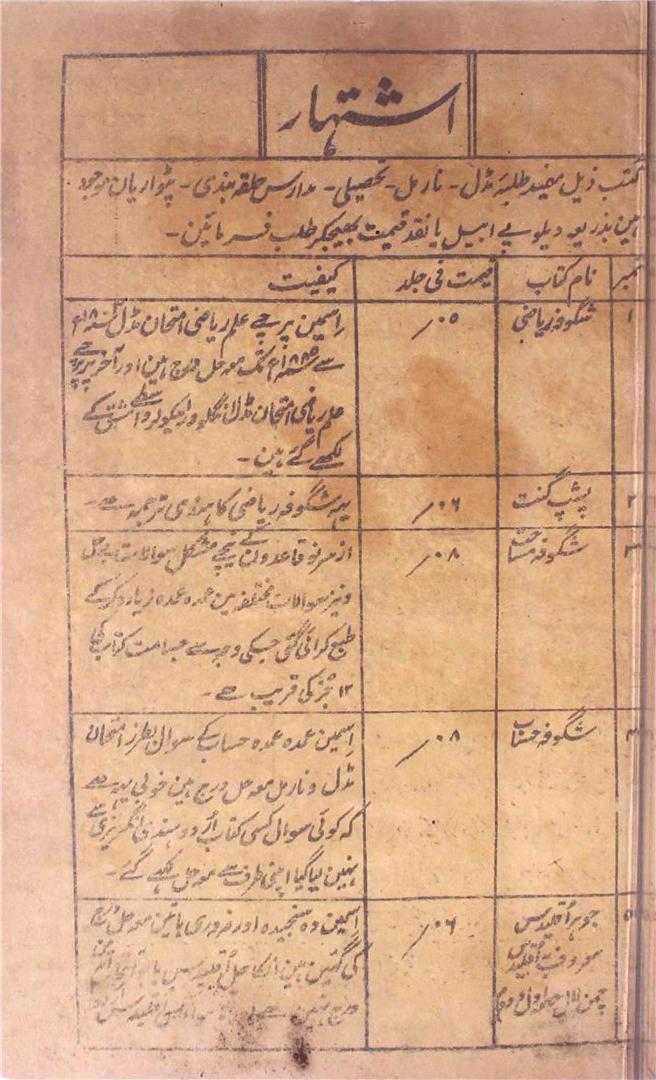 اشتہار
کتب ذیل مفید طلبہ مڈل - نارمل - تحصیلی - مدارس حلقہ بندی - پٹواریان موجود
ہین بذریعہ ویلوپے ابیل یا نقد قیمت بھیجکر طلب فرمائین -
نمبر نام کتاب قیمت فی جلد کیفیت
۱ شگوفہ ریاضی ۰۵؍ اِسمین پرچے علم ریاضی امتحان مڈل
سے تک معہ حل درج ہین اور آخر پرچے
علم ریاضی امتحان مڈل انگلو ورنیکولر واسطے مشق کے
لکھے گئے ہین -
۲ پشپ گنت ۰۶؍ یہہ شگوفہ ریاضی کا ہندی ترجمہ ہے -
۳ شگوفہ مساحت ۰۸؍ از سر نو قاعدون کے نیچے مشکل سوالات معہ حل
و نیز سوالات مختلفہ مین عمدہ عمدہ زیادہ کرکے
طبع کرائی گئی جسکی وجہ سے جسامت کتاب کی
۱۲ جُز کی قریب ہے -
۴ شگوفہ حساب ۰۸؍ اِسمین عمدہ عمدہ حساب کے سوال بطرز امتحان
مڈل و نارمل معہ حل درج ہین خوبی یہہ ہے
کہ کوئی سوال کسی کتاب اُردو ہندی انگریزی سے
نہین لیا گیا اپنی طرف سے معہ حل لکھے گئے -
۵ جوہر اُقلیدس ۰۶؍ اِسمین وہ سنجیدہ اور ضروری باتین معہ حل درج
معروف بہ اُقلیدس کی گئین ہین انکا حل اُقلیدس
چمن لال حصہ اول و دوم درج نہین ہے اُقلیدس